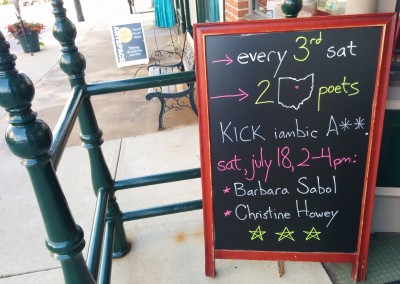 → every 3rd sat
→ 2 poets
KICK iambic A**.
sat, july 18, 2-4pm:
* Barbara Sabol
* Christine Howey